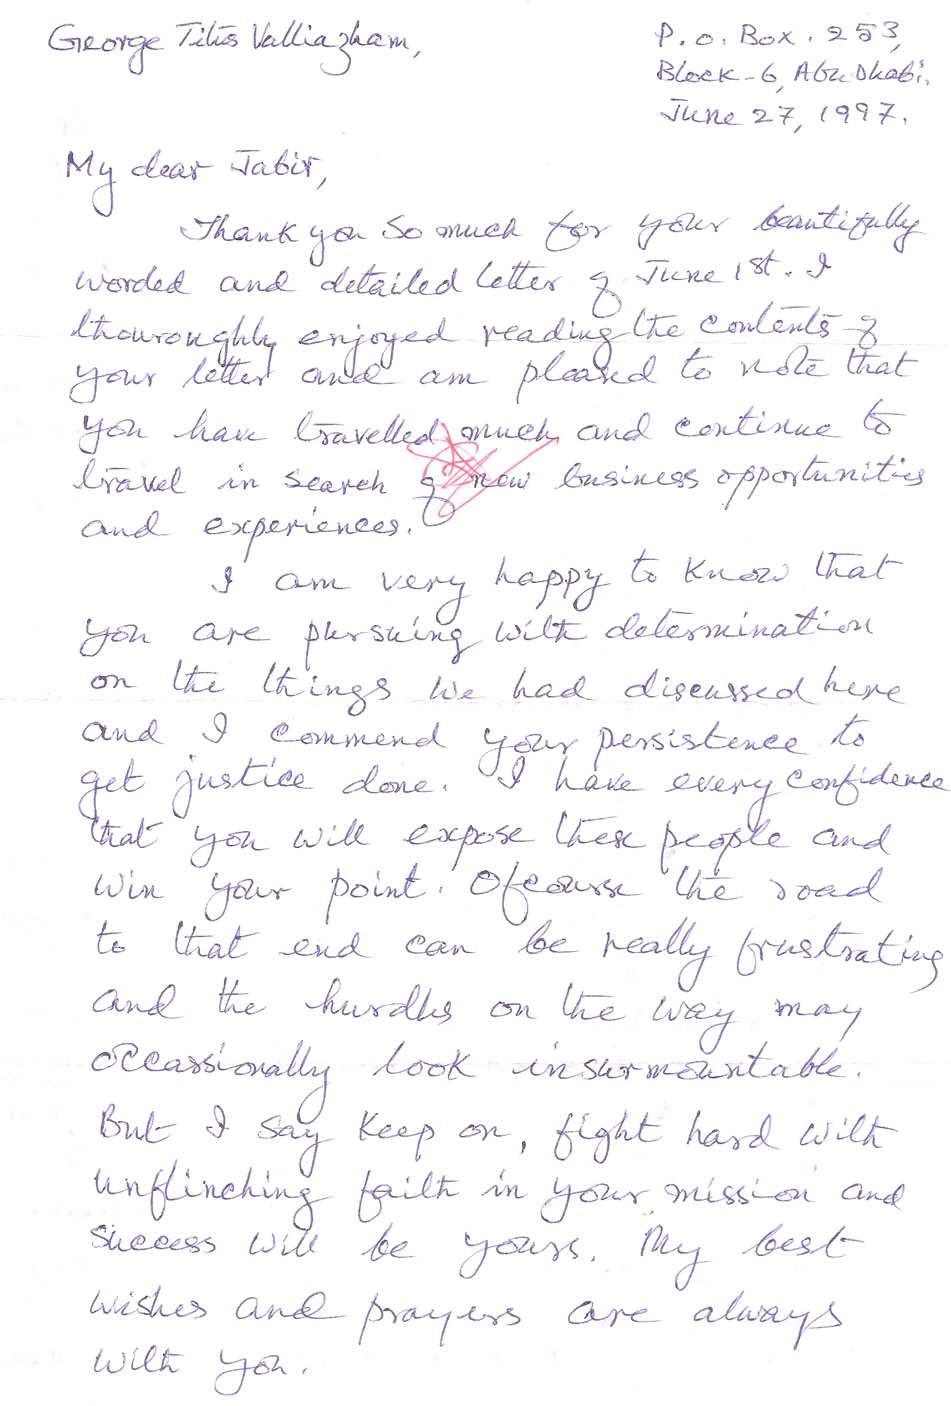 George Titus Valliazham,
P.O. Box. 253,
Block-6, Abu Dhabi.
June 27, 1997.
My dear Jabir,
Thank you so much for your beautifully
worded and detailed letter of June 1st. I
thouroughly enjoyed reading the contents of
your letter and am pleased to note that
you have travelled much and continue to
travel in search of new business opportunities
and experiences.
I am very happy to know that
you are pursuing with determination
on the things we had discussed here
and I commend your persistence to
get justice done. I have every confidence
that you will expose these people and
win your point. Ofcourse the road
to that end can be really frustrating
and the hurdles on the way may
occassionally look insurmountable.
But I say keep on, fight hard with
unflinching faith in your mission and
success will be yours. My best
wishes and prayers are always
with you.